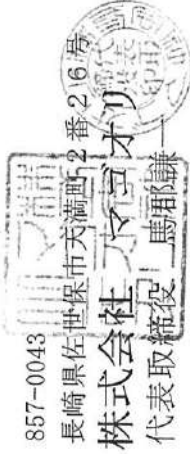 857-0043
長崎県佐世保市天満町2番26号
株式会社 マゴオリ
代表取締役 馬郡謙一